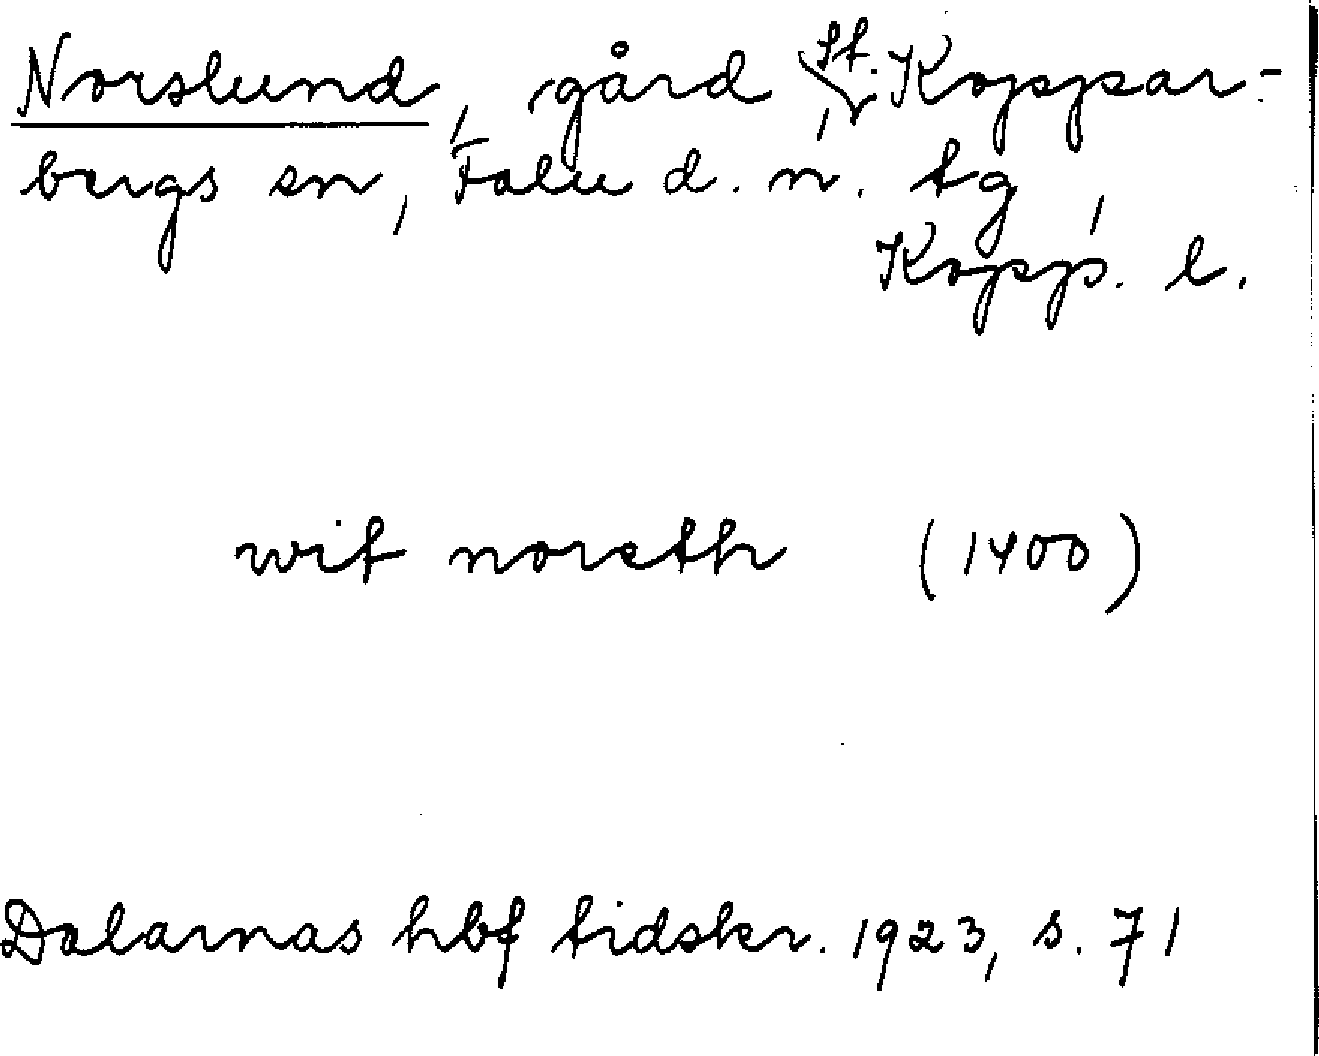 Norslund, gård, St. Koppar-
bergs sn, Falu d. n. tg,
Kopp. l.
wit noreth (1400)
Dalarnas hbf tidskr. 1923, s. 71